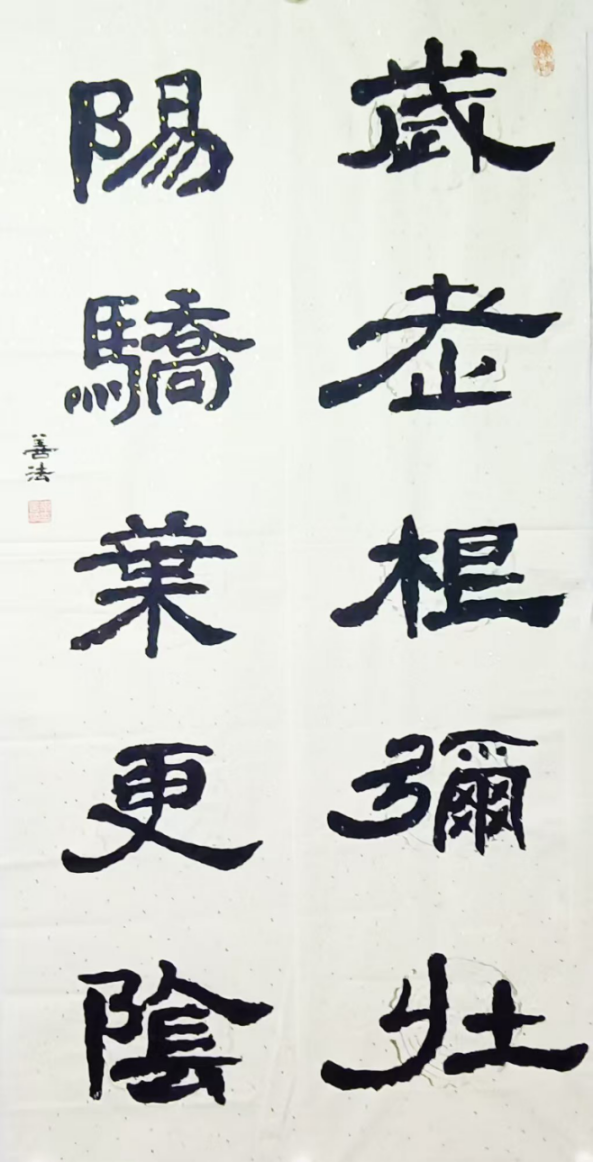 歲老根彌壯
陽驕葉更陰
善法